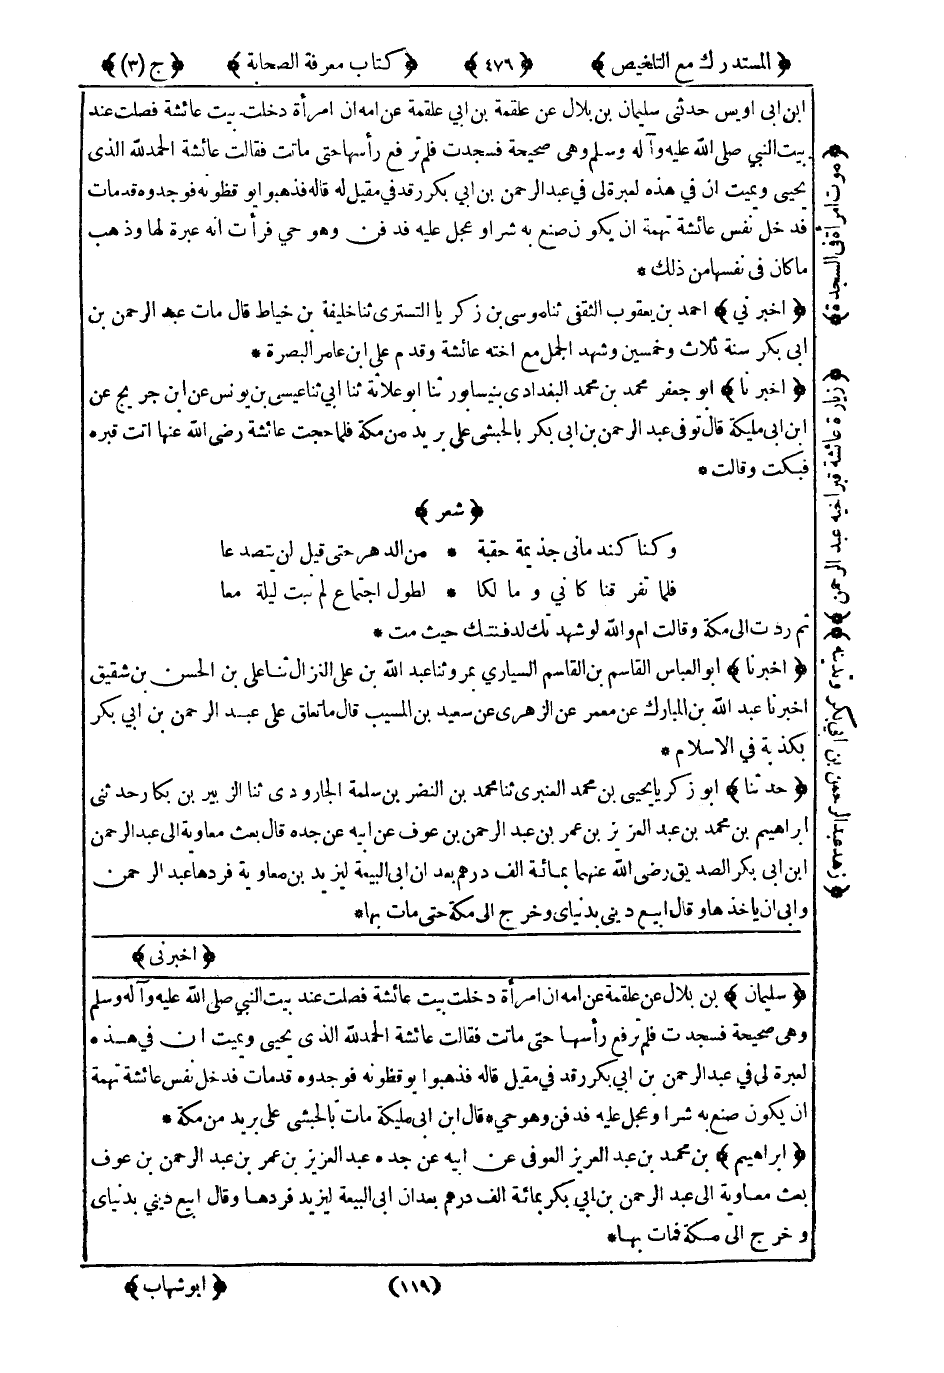 ﴿ المستدرك مع التلخيص ﴾ ﴿ ٤٧٦ ﴾ ﴿ كتاب معرفة الصحابة ﴾ ﴿ ج (٣) ﴾
ابن ابى اويس حدثى سليمان بن بلال عن علقمة بن ابي علقمة عن امه ان امرأة دخلت بيت عائشة فصلت عند
بيت النبي صلى الله عليه وآله وسلم وهى صحيحة فسجدت فلم ترفع رأسها حتى ماتت فقالت عائشة الحمد لله الذى
يحيى ويميت ان في هذه لعبرة لى في عبد الرحمن بن ابي بكر رقد في مقيل له قاله فذهبوا يوقظونه فوجدوه قدمات
فدخل نفس عائشة تهمة ان يكون صنع به شر او عجل عليه فدفن وهو حي فرأت انه عبرة لها وذهب
ماكان فى نفسها من ذلك *
﴿ اخبرني ﴾ احمد بن يعقوب الثقفى ثنا موسى بن زكريا التسترى ثنا خليفة بن خياط قال مات عبد الرحمن بن
ابى بكر سنة ثلاث وخمسين وشهد الجمل مع اخته عائشة وقدم على ابن عامر البصرة *
﴿ اخبرنا ﴾ ابو جعفر محمد بن محمد البغدادى بنيسابور ثنا ابو علاثة ثنا ابي ثنا عيسى بن يونس عن ابن جريج عن
ابن ابى مليكة قال توفى عبد الرحمن بن ابى بكر بالحبشى على بريد من مكة فلما حجت عائشة رضى الله عنها اتت قبره
فبكت وقالت *
﴿ شعر ﴾
وكنا كندمانى جذيمة حقبة * من الدهر حتى قيل لن يتصدعا
فلما تفرقنا كاني ومالكا * لطول اجتماع لم نبت ليلة معا
ثم ردت الى مكة وقالت ام والله لو شهدتك لدفنتك حيث مت *
﴿ اخبرنا ﴾ ابو العباس القاسم بن القاسم السياري بمرو ثنا عبد الله بن على الغزال ثنا على بن الحسن بن شقيق
اخبرنا عبد الله بن المبارك عن معمر عن الزهرى عن سعيد بن المسيب قال ماتعلق على عبد الرحمن بن ابي بكر
بكذبة في الاسلام *
﴿ حدثنا ﴾ ابو زكريا يحيى بن محمد العنبرى ثنا محمد بن النضر بن سلمة الجارودى ثنا الزبير بن بكار حدثنى
ابراهيم بن محمد بن عبد العزيز بن عمر بن عبد الرحمن بن عوف عن ابيه عن جده قال بعث معاوية الى عبد الرحمن
ابن ابى بكر الصديق رضى الله عنهما بمائة الف درهم بعد ان ابى البيعة ليزيد بن معاوية فردها عبد الرحمن
وابى ان ياخذها وقال ابيع ديني بدنياى وخرج الى مكة حتى مات بها*
﴿ اخبرنى ﴾
﴿ سليمان ﴾ بن بلال عن علقمة عن امه ان امرأة دخلت بيت عائشة فصلت عند بيت النبي صلى الله عليه وآله وسلم
وهى صحيحة فسجدت فلم ترفع رأسها حتى ماتت فقالت عائشة الحمد لله الذى يحيى ويميت ان في هذه
لعبرة لى في عبد الرحمن بن ابي بكر رقد في مقيل قاله فذهبوا يوقظونه فوجدوه قدمات فدخل نفس عائشة تهمة
ان يكون صنع به شرا وعجل عليه فدفن وهو حي * قال ابن ابى مليكة مات بالحبشى على بريد من مكة *
﴿ ابراهيم ﴾ بن محمد بن عبد العزيز العوفى عن ابيه عن جده عبد العزيز بن عمر بن عبد الرحمن بن عوف
بعث معاوية الى عبد الرحمن بن ابي بكر بمائة الف درهم بعد ان ابى البيعة ليزيد فردها وقال ابيع ديني بدنياى
وخرج الى مكة فمات بها*
(١١٩) ﴿ ابو شهاب ﴾
﴿ موت امرأة فى السجدة ﴾
﴿ زيارة عائشة قبر اخيه عبد الرحمن ﴾
﴿ زهد عبد الرحمن بن ابي بكر وديته ﴾